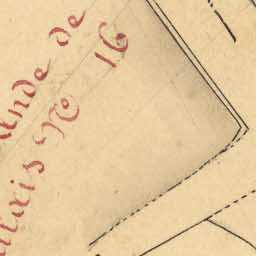 ande de
alais No 16